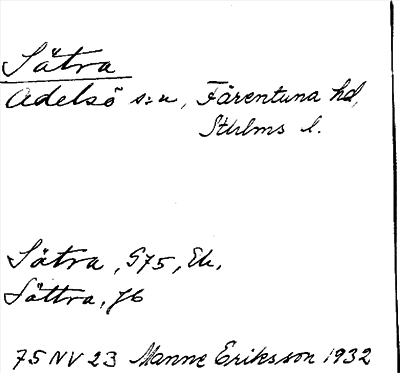 Sätra
Adelsö s:n, Färentuna hd,
Sthlms l.
Sätra, G75, Ek.
Sättra, Jb
75 NV 23 Manne Eriksson 1932